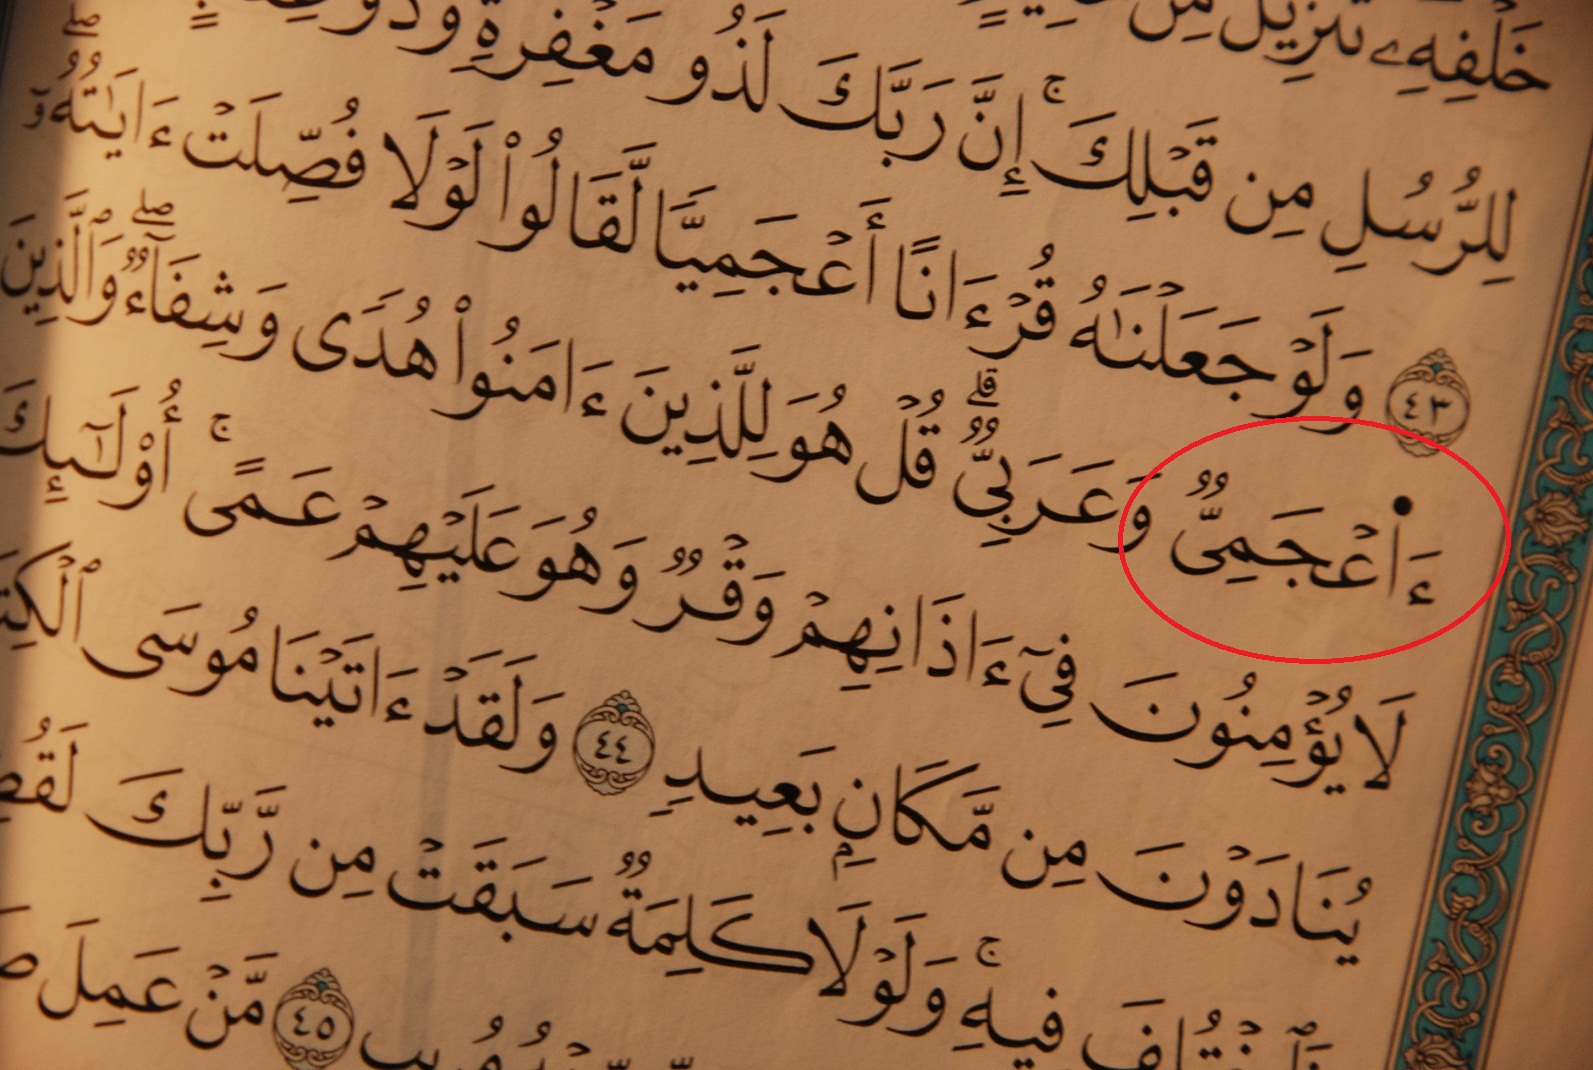 خَلْفِهِۦ تَنزِيلٌ مِّنْ
لِلرُّسُلِ مِن قَبْلِكَ ۚ إِنَّ رَبَّكَ لَذُو مَغْفِرَةٍ وَذُو
﴿٤٣﴾ وَلَوْ جَعَلْنَٰهُ قُرْءَانًا أَعْجَمِيًّا لَّقَالُوا۟ لَوْلَا فُصِّلَتْ ءَايَٰتُهُۥٓ ۖ
ءَا۬عْجَمِىٌّ وَعَرَبِىٌّ ۗ قُلْ هُوَ لِلَّذِينَ ءَامَنُوا۟ هُدًى وَشِفَآءٌ ۖ وَٱلَّذِينَ
لَا يُؤْمِنُونَ فِىٓ ءَاذَانِهِمْ وَقْرٌ وَهُوَ عَلَيْهِمْ عَمًى ۚ أُو۟لَٰٓئِكَ
يُنَادَوْنَ مِن مَّكَانٍۭ بَعِيدٍ ﴿٤٤﴾ وَلَقَدْ ءَاتَيْنَا مُوسَى
فِيهِ ۚ وَلَوْلَا كَلِمَةٌ سَبَقَتْ مِن رَّبِّكَ
﴿٤٥﴾ مَّنْ عَمِلَ